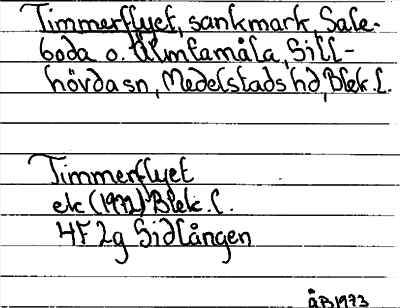 Timmerflyet, sankmark, Sale-
boda o. Almtamåla, Sill-
hövda sn, Medelstads hd, Blek. l.
Timmerflyet
ek (1972) Blek. l.
4F 2g Sidlången
ÅB 1973